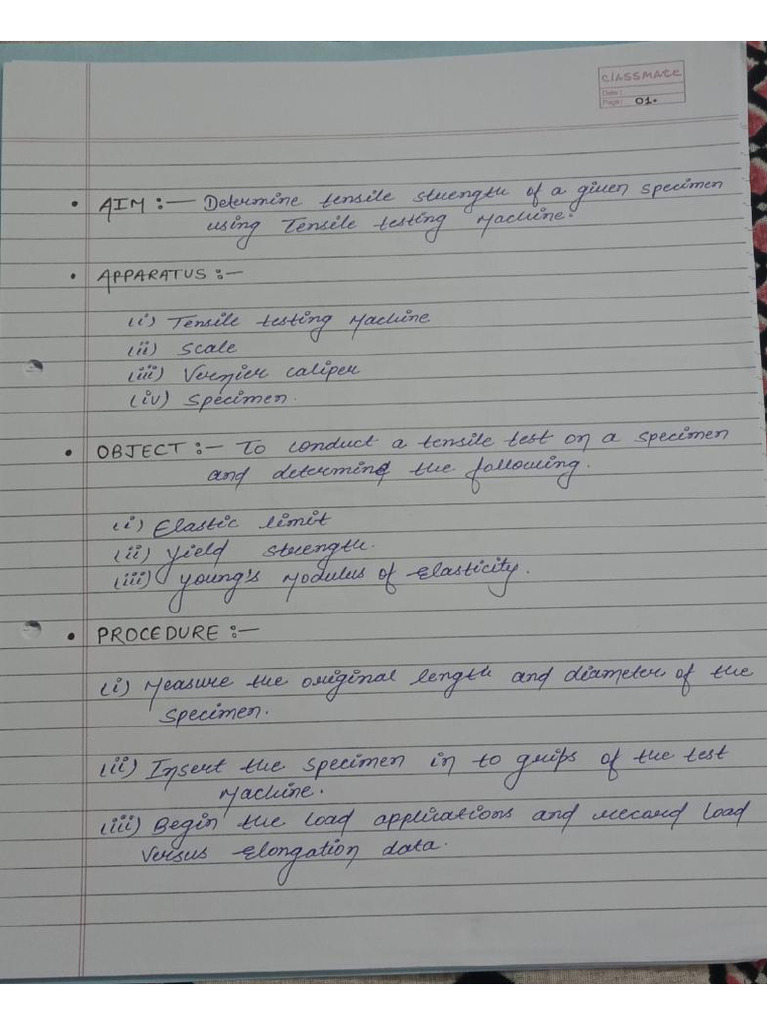 classmate
Date :
Page : 01.
• AIM :— Determine tensile strength of a given specimen
using Tensile testing Machine.
• APPARATUS :—
(i) Tensile testing Machine
(ii) Scale
(iii) Vernier caliper
(iv) Specimen.
• OBJECT :— To conduct a tensile test on a specimen
and determine the following.
(i) Elastic limit
(ii) Yield strength.
(iii) Young's Modulus of Elasticity.
• PROCEDURE :—
(i) Measure the original length and diameter of the
specimen.
(ii) Insert the specimen in to grips of the test
Machine.
(iii) Begin the load applications and record load
versus Elongation data.